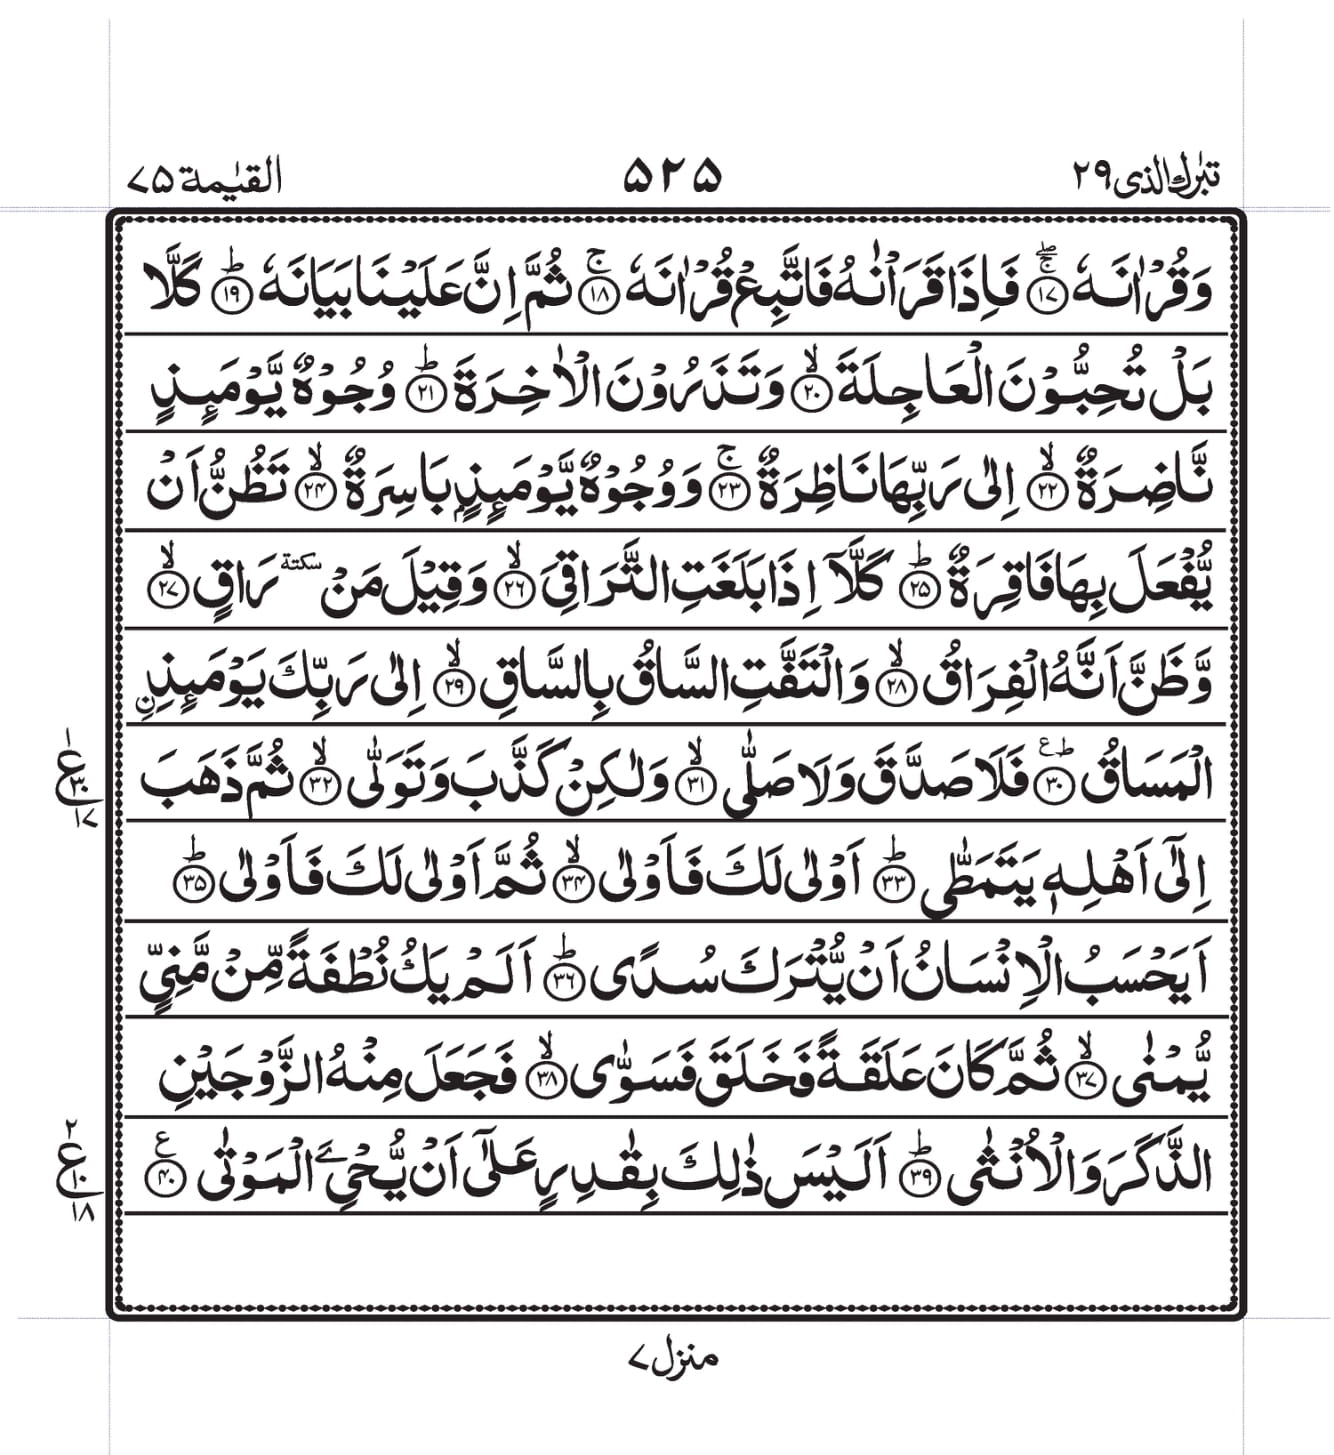 تبٰرك الذى ٢٩
٥٢٥
القيٰمة ٧٥
وَقُرْاٰنَهٗ ۚۖ ۝١٧ فَاِذَا قَرَاْنٰهُ فَاتَّبِعْ قُرْاٰنَهٗ ۚ ۝١٨ ثُمَّ اِنَّ عَلَيْنَا بَيَانَهٗ ؕ ۝١٩ كَلَّا
بَلْ تُحِبُّوْنَ الْعَاجِلَةَ ۙ ۝٢٠ وَتَذَرُوْنَ الْاٰخِرَةَ ؕ ۝٢١ وُجُوْهٌ يَّوْمَىِٕذٍ
نَّاضِرَةٌ ۙ ۝٢٢ اِلٰى رَبِّهَا نَاظِرَةٌ ۚ ۝٢٣ وَوُجُوْهٌ يَّوْمَىِٕذٍۭ بَاسِرَةٌ ۙ ۝٢٤ تَظُنُّ اَنْ
يُّفْعَلَ بِهَا فَاقِرَةٌ ؕ ۝٢٥ كَلَّاۤ اِذَا بَلَغَتِ التَّرَاقِيَ ۙ ۝٢٦ وَقِيْلَ مَنْ سكتة رَاقٍ ۙ ۝٢٧
وَّظَنَّ اَنَّهُ الْفِرَاقُ ۙ ۝٢٨ وَالْتَفَّتِ السَّاقُ بِالسَّاقِ ۙ ۝٢٩ اِلٰى رَبِّكَ يَوْمَىِٕذِ ࣙنِ
الْمَسَاقُ ؕع ۝٣٠ فَلَا صَدَّقَ وَلَا صَلّٰى ۙ ۝٣١ وَلٰكِنْ كَذَّبَ وَتَوَلّٰى ۙ ۝٣٢ ثُمَّ ذَهَبَ
١ ع ٣٠ ١٧
اِلٰۤى اَهْلِهٖ يَتَمَطّٰى ؕ ۝٣٣ اَوْلٰى لَكَ فَاَوْلٰى ۙ ۝٣٤ ثُمَّ اَوْلٰى لَكَ فَاَوْلٰى ؕ ۝٣٥
اَيَحْسَبُ الْاِنْسَانُ اَنْ يُّتْرَكَ سُدًى ؕ ۝٣٦ اَلَمْ يَكُ نُطْفَةً مِّنْ مَّنِيٍّ
يُّمْنٰى ۙ ۝٣٧ ثُمَّ كَانَ عَلَقَةً فَخَلَقَ فَسَوّٰى ۙ ۝٣٨ فَجَعَلَ مِنْهُ الزَّوْجَيْنِ
الذَّكَرَ وَالْاُنْثٰى ؕ ۝٣٩ اَلَيْسَ ذٰلِكَ بِقٰدِرٍ عَلٰۤى اَنْ يُّحْيِۦَ الْمَوْتٰى ع ۝٤٠
٢ ع ١٠ ١٨
منزل ٧